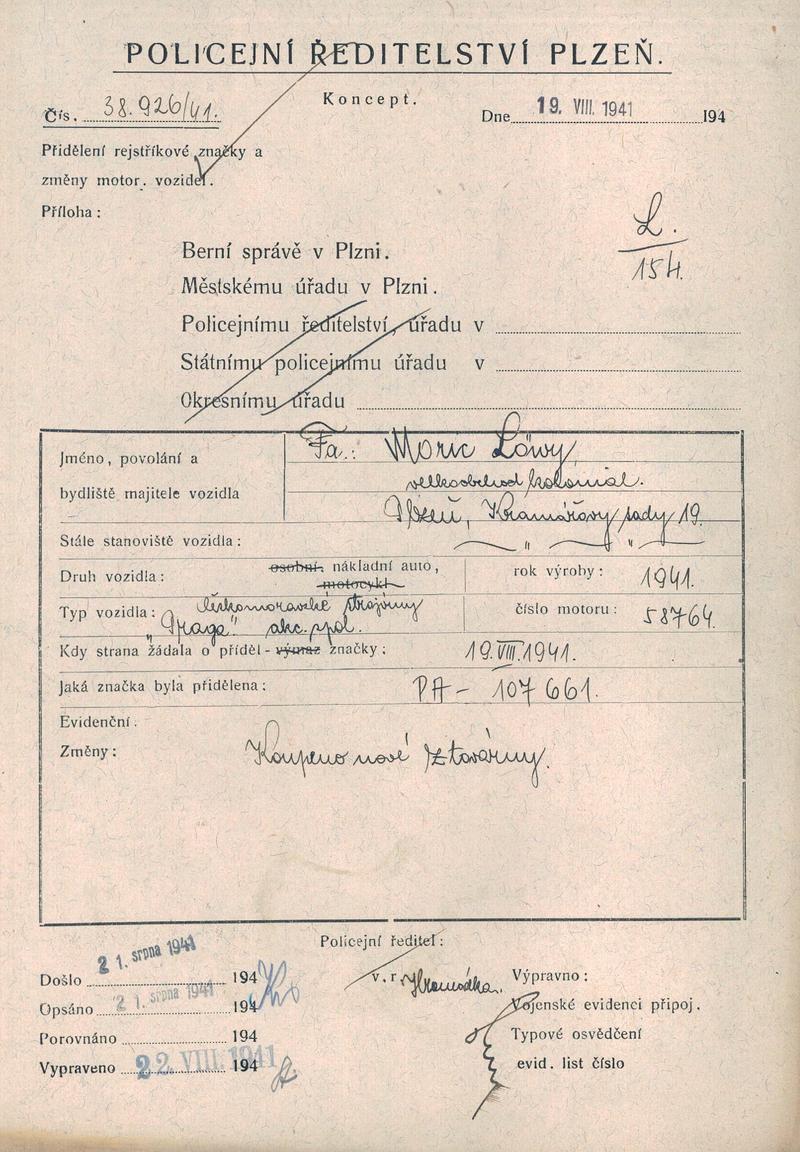 POLICEJNÍ ŘEDITELSTVÍ PLZEŇ.
Koncept.
Čís. 38.926/41.
Dne 19. VIII. 1941 194
Přidělení rejstříkové značky a
změny motor. vozidel.
Příloha:
L.
154.
Berní správě v Plzni.
Městskému úřadu v Plzni.
Policejnímu ředitelství, úřadu v
Státnímu policejnímu úřadu v
Okresnímu úřadu
Jméno, povolání a
bydliště majitele vozidla
Fa.: Moric Löwy,
velkoobchod kolonial.
Plzeň, Kramářovy sady 19.
Stále stanoviště vozidla: " "
Druh vozidla: osobní, nákladní auto,
motocykl
rok výroby: 1941.
Typ vozidla: Českomoravské strojírny
"Praga" akc. spol.
číslo motoru: 58764.
Kdy strana žádala o příděl-výmaz značky: 19.VIII.1941.
Jaká značka byla přidělena: PA - 107661.
Evidenční.
Změny: Koupeno nové z továrny.
Policejní ředitel:
v. r.
Došlo 21. srpna 1941 194
Opsáno 21. srpna 1941 194
Porovnáno 194
Vypraveno 22. VIII. 1941 194
Výpravno:
Vojenské evidenci připoj.
Typové osvědčení
evid. list číslo